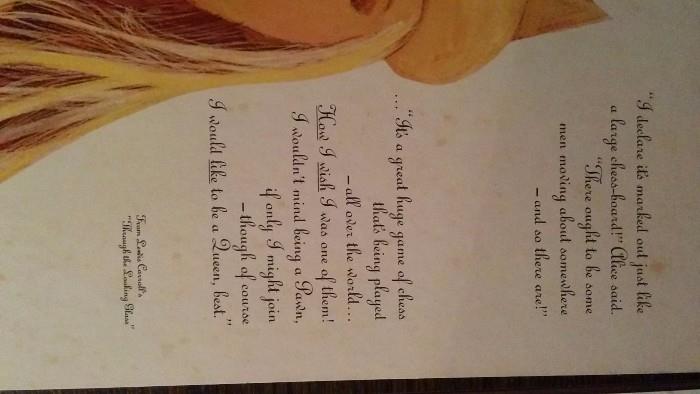 "I declare it's marked out just like
a large chess-board!" Alice said.
"There ought to be some
men moving about somewhere
– and so there are!"
... "It's a great huge game of chess
that's being played
– all over the world...
How I wish I was one of them!
I wouldn't mind being a Pawn,
if only I might join
– though of course
I would like to be a Queen, best."
From Lewis Carroll's
"Through the Looking Glass"